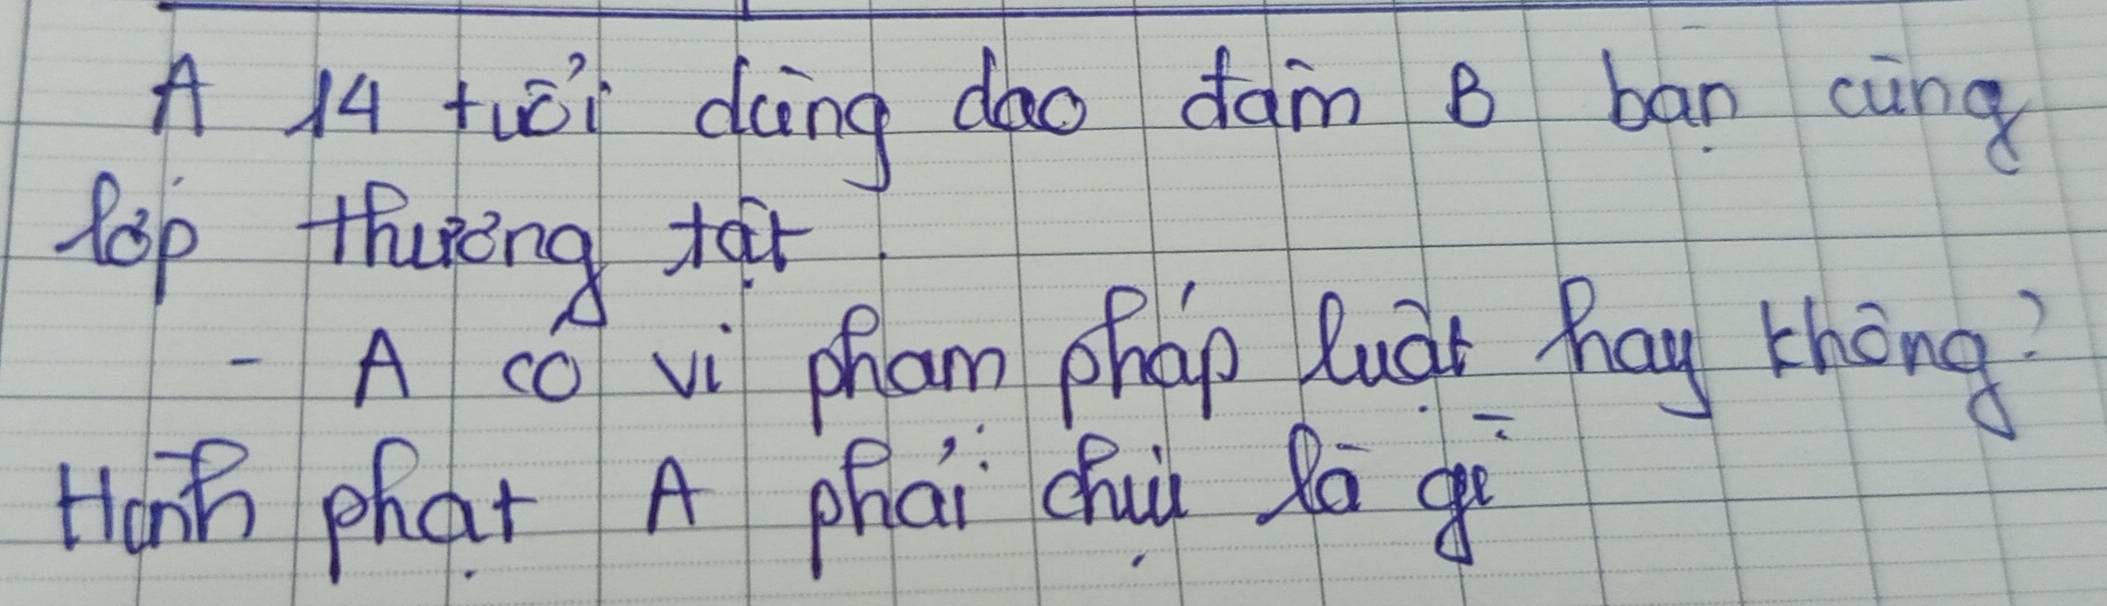 A 14 tuổi dùng dao đâm B bạn cùng
lớp thương tật.
- A có vi phạm pháp luật hay không?
Hành phạt A phải chịu là gì